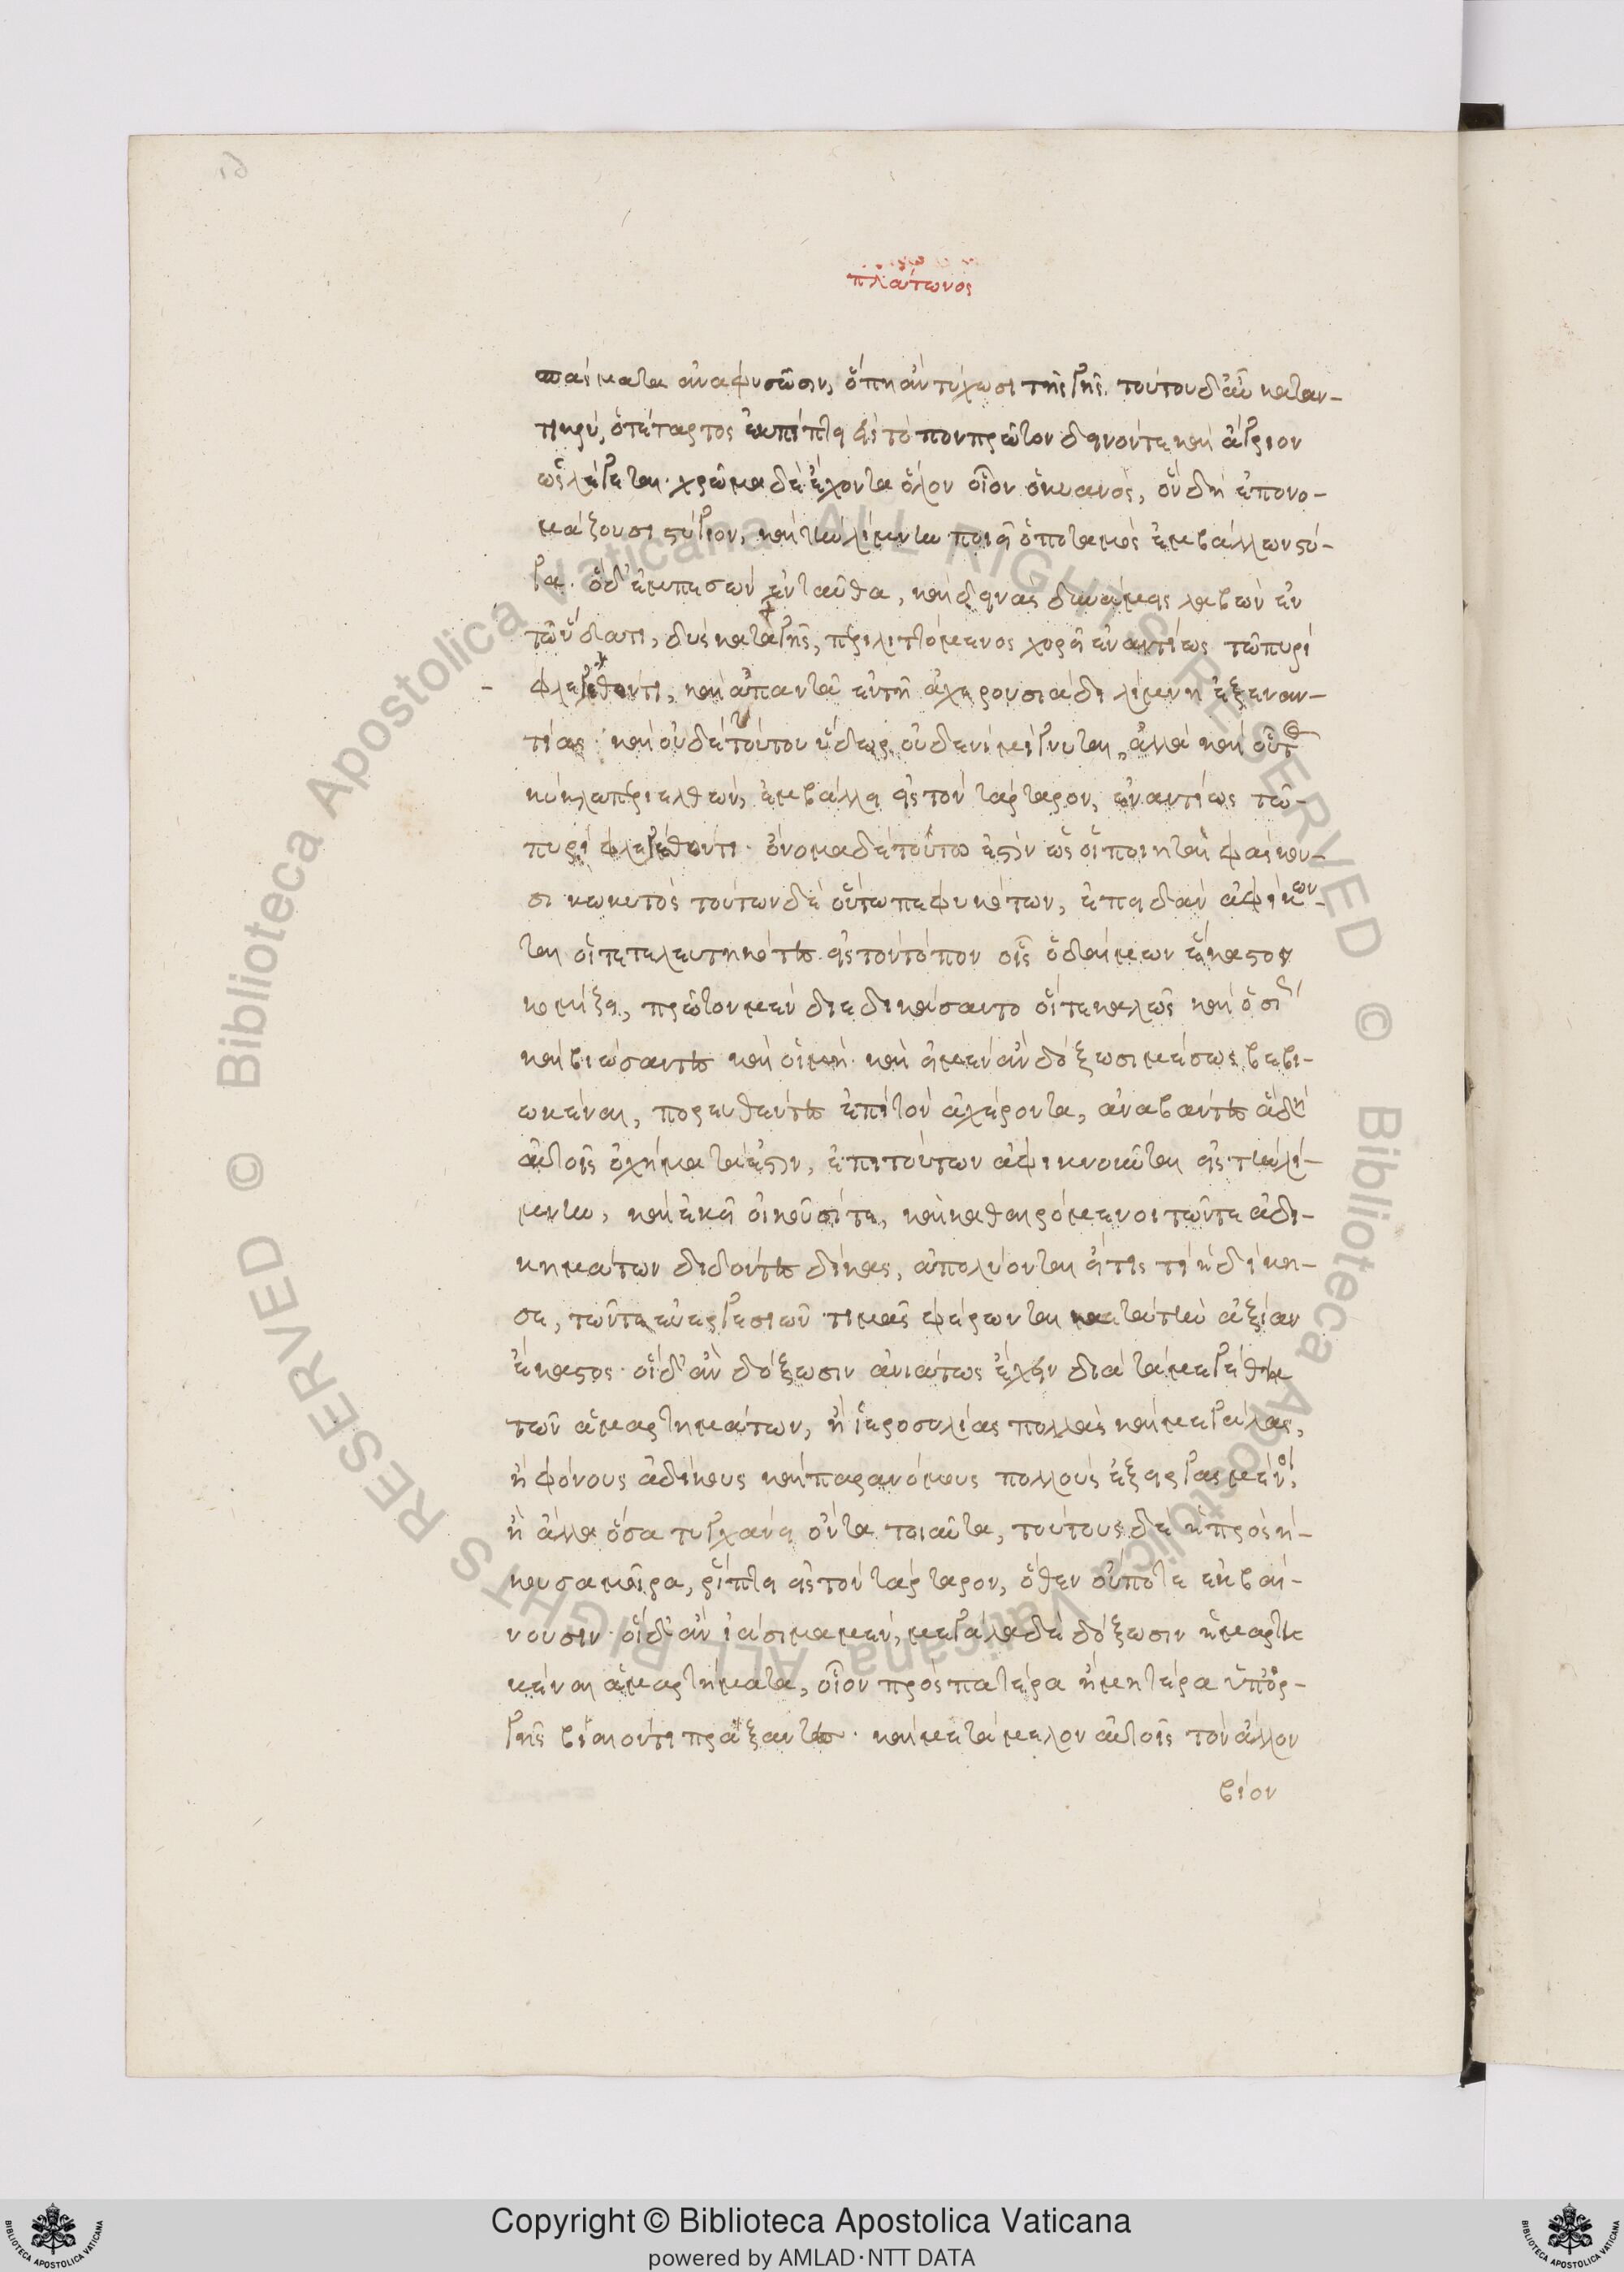 πλάτωνος
σπάσματα ἀναφυσῶσιν, ὅπη ἂν τύχωσι τῆς γῆς. τούτου δ' αὖ καταν-
τικρύ, ὁ τέταρτος ἐκπίπτει εἰς τόπον πρῶτον δεινόν τε καὶ ἄγριον
ὡς λέγεται. χρῶμα δὲ ἔχοντα ὅλον οἷον ὁ κυανός, ὃν δὴ ἐπονο-
μάζουσι στύγιον, καὶ τὴν λίμνην ποιεῖ ὁ ποταμὸς ἐμβάλλων στύ-
γα. ὁ δ' ἐμπεσὼν ἐνταῦθα, καὶ δεινὰς δυνάμεις λαβὼν ἐν
τῶ ὕδατι, δὺς κατὰ γῆς, περιλιττόμενος χορεῖ ἐναντίως τῶ πυρι
φλεγέθοντι, καὶ ἀπαντᾶ ἐν τῆ ἀχερουσιάδι λίμνη ἐξ ἐναν-
τίας. καὶ οὐδὲ τὸ τούτου ὕδωρ οὐδενὶ μίγνυται, ἀλλὰ καὶ οὗτος
κύκλω περιελθὼν, ἐμβάλλει εἰς τὸν τάρταρον, ἐναντίως τῶ
πυριφλεγέθοντι. ὄνομα δὲ τούτω ἐστὶν ὡς οἱ ποιηταὶ φάσκου-
σι κωκυτὸς τούτων δὲ οὕτω πεφυκότων, ἐπειδὰν ἀφίκων-
ται οἱ τετελευτηκότες εἰς τὸν τόπον οἷς ὁ δαίμων ἕκαστον
κομίζει, πρῶτον μὲν διεδικάσαντο οἵ τε καλῶς καὶ ὁσί
καὶ βιώσαντες καὶ οἱ μή. καὶ οἳ μὲν ἂν δόξωσι μέσως βεβι-
ωκέναι, πορευθέντες ἐπὶ τὸν ἀχέροντα, ἀναβάντες ἃ δὴ
αὐτοῖς ὀχήματά ἐστιν, ἐπὶ τούτων ἀφικνοῦνται εἰς τὴν λί-
μνην, καὶ ἐκεῖ οἰκοῦσί τε, καὶ καθαιρόμενοι τῶν τε ἀδι-
κημάτων διδόντες δίκας, ἀπολύονται εἴ τίς τι ἠδίκη-
σε, τῶν τε εὐεργεσιῶν τιμὰς φέρωνται κατὰ τὴν ἀξίαν
ἕκαστος. οἳ δ' ἂν δόξωσιν ἀνιάτως ἔχειν διὰ τὰ μεγέθη
τῶν ἁμαρτημάτων, ἢ ἱεροσυλίας πολλὰς καὶ μεγάλας,
ἢ φόνους ἀδίκους καὶ παρανόμους πολλοὺς ἐξειργασμένοι,
ἢ ἄλλα ὅσα τυγχάνει ὄντα τοιαῦτα, τούτους δὲ ἡ προσή-
κουσα μοῖρα, ῥίπτει εἰς τὸν τάρταρον, ὅθεν οὔποτε ἐκβαί-
νουσιν. οἳ δ' ἂν ἰάσιμα μὲν, μεγάλα δὲ δόξωσιν ἡμαρτη
κέναι ἁμαρτήματα, οἷον πρὸς πατέρα ἢ μητέρα ὑπ' ὀρ-
γῆς βίαιόν τι πράξαντες. καὶ μεταμέλον αὐτοῖς τὸν ἄλλον
βίον
Copyright © Biblioteca Apostolica Vaticana
powered by AMLAD·NTT DATA